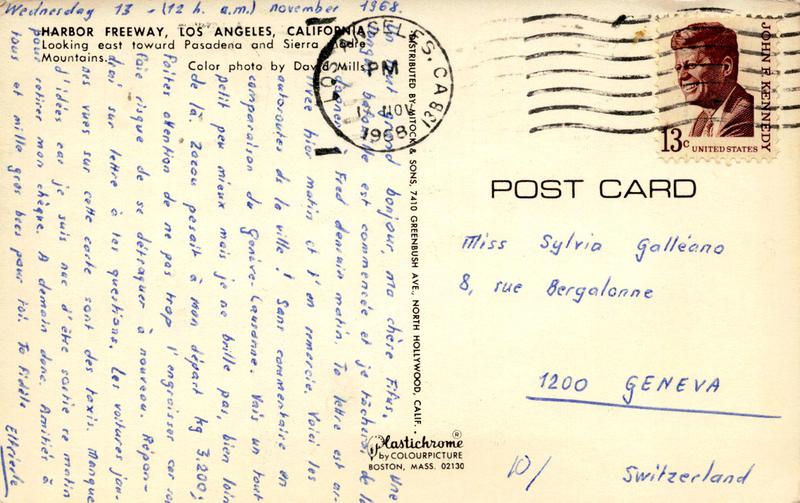 Wednesday 13 - (12 h. a.m.) november 1968.
HARBOR FREEWAY, LOS ANGELES, CALIFORNIA
Looking east toward Pasadena and Sierra Madre
Mountains.
Color photo by David Mills
grand bonjour, ma chère Fifus, une
est commencée et je tâcherai de la
à Fred demain matin. Ta lettre est ar-
hier matin et t'en remercie. Voici les
autoroutes de la ville! Sans commentaire en
comparaison du Genève-Lausanne. Vais un tout
petit peu mieux mais je ne brille pas, bien loin
de là. Zouzou pesait à mon départ kg 3.200;
Faites attention de ne pas trop l'engraisser car
risque de se détraquer à nouveau. Répon-
drai sur lettre à tes questions. Les voitures jau-
nes vues sur cette carte sont des taxis. Manque
d'idées car je suis nue d'être sortie ce matin
pour retirer mon chèque. A demain donc. Amitiés à
tous et mille gros becs pour toi. Ta fidèle
DISTRIBUTED BY MITOCK & SONS, 7410 GREENBUSH AVE., NORTH HOLLYWOOD, CALIF.
LOS ANGELES, CA
PM
NOV
1968
138
JOHN F. KENNEDY
13c UNITED STATES
POST CARD
Miss Sylvia Galléano
8, rue Bergalonne
1200 GENEVA
10/ Switzerland
Plastichrome®
by COLOURPICTURE
BOSTON, MASS. 02130